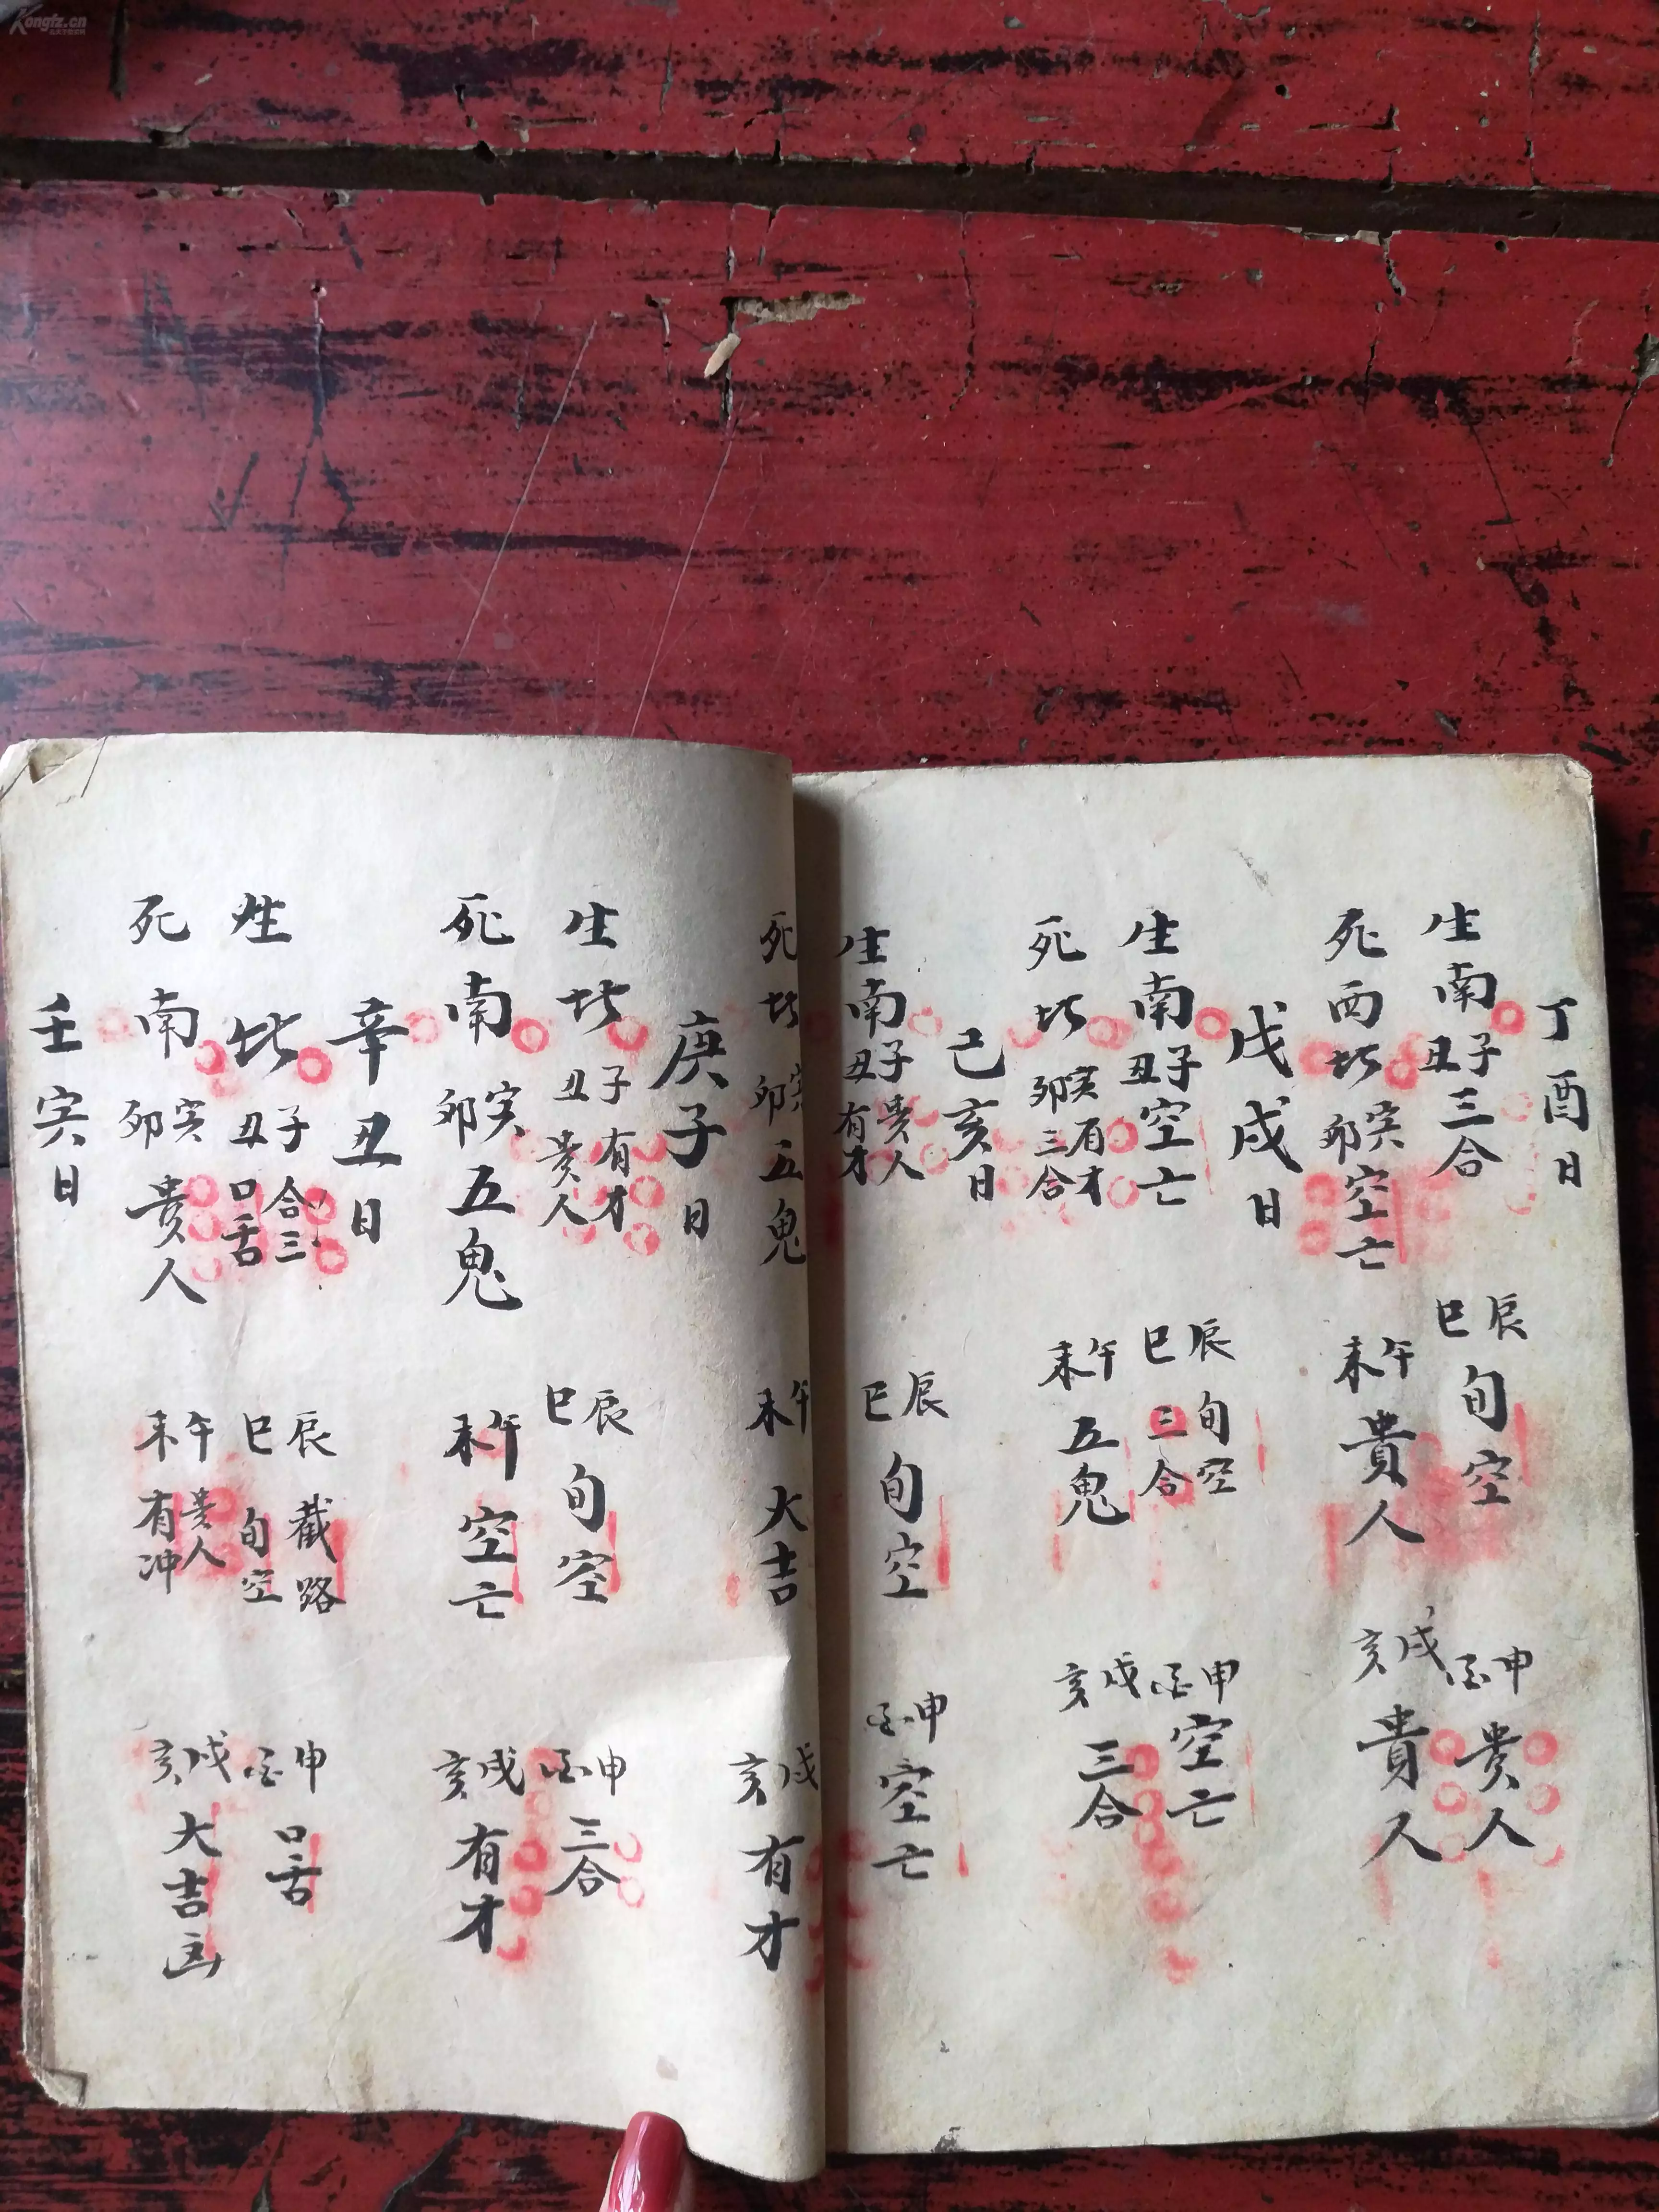 丁酉日
生南子丑三合 辰巳旬空 申酉贵人
死西北寅卯空亡 午未貴人 戌亥貴人
戊戌日
生南子丑空亡 辰旬空巳三合 申酉空亡
死北寅有才卯三合 午未五鬼 戌亥三合
己亥日
生南子贵人丑有才 辰巳旬空 申酉空亡
死北寅卯五鬼 午未大吉 戌亥有才
庚子日
生北子有才丑贵人 辰巳旬空 申酉三合
死南寅卯五鬼 午未空亡 戌亥有才
辛丑日
生北子合三丑口舌 辰截路巳旬空 申酉口舌
死南寅卯贵人 午贵人未有冲 戌亥大吉
壬寅日
Kongfz.cn